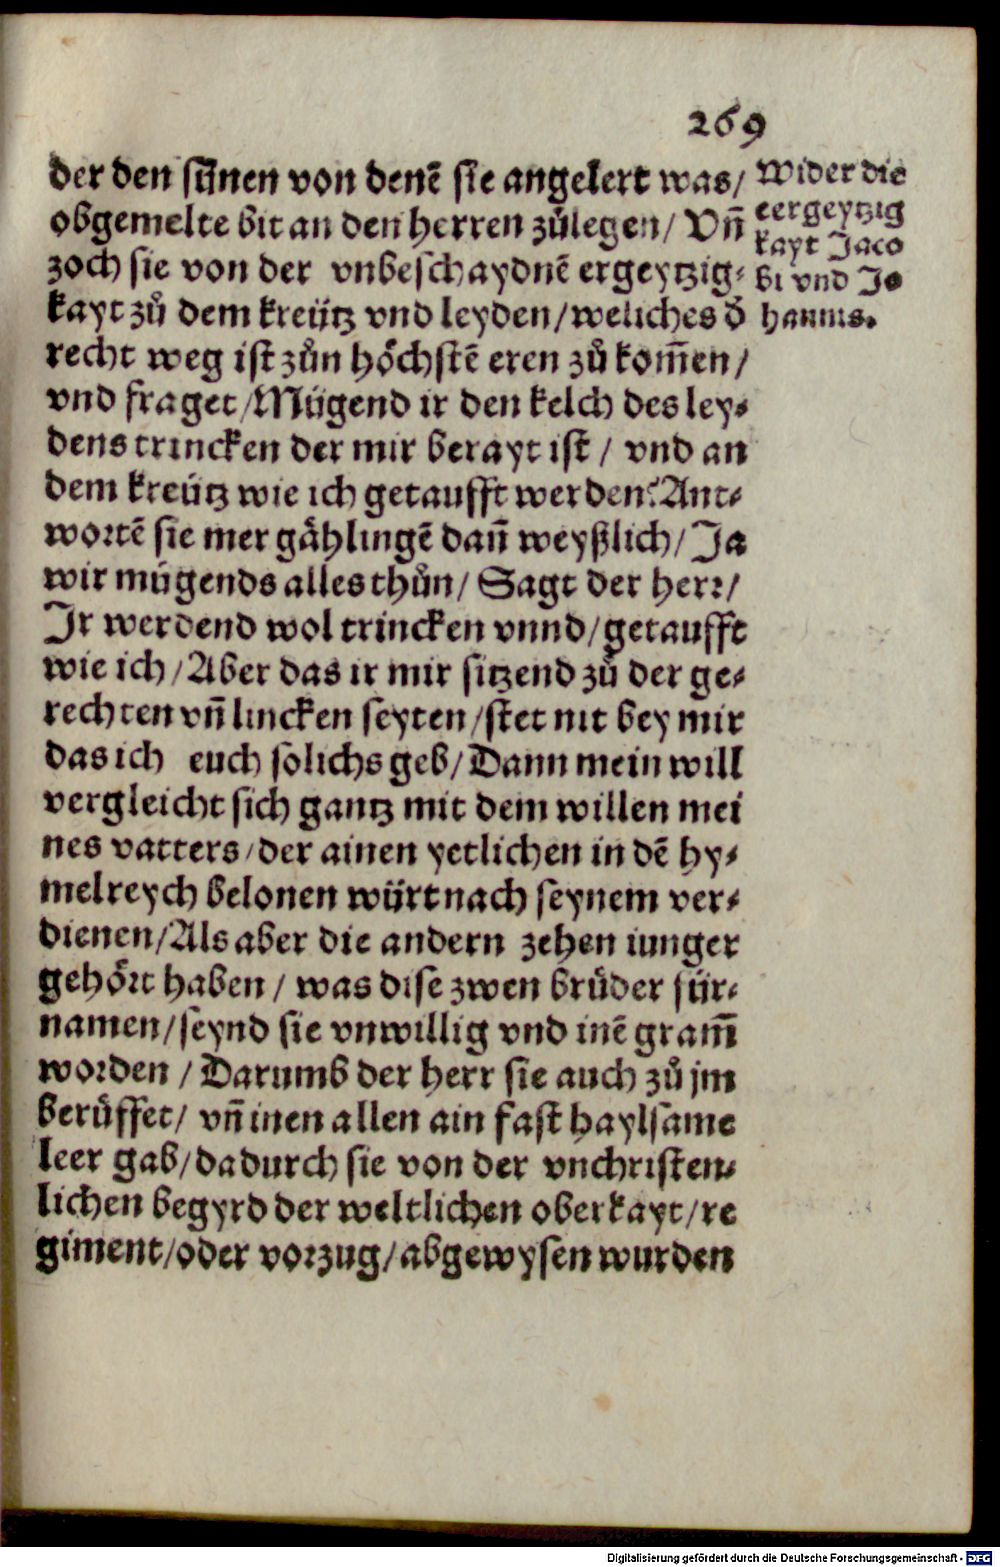 269
der den sünen von denē sie angelert was/
obgemelte bit an den herren zůlegen/ Vñ
zoch sie von der vnbeschaydnē ergeytzig-
kayt zů dem kreütz vnd leyden/weliches ď
recht weg ist zůn höchstē eren zů kom̄en/
vnd fraget/Mügend ir den kelch des ley-
dens trincken der mir berayt ist/ vnd an
dem kreütz wie ich getaufft werden? Ant-
wortē sie mer gählingē dañ weyßlich/ Ja
wir mügends alles thůn/ Sagt der herr/
Ir werdend wol trincken vnnd/getaufft
wie ich/Aber das ir mir sitzend zů der ge-
rechten vñ lincken seyten/stet nit bey mir
das ich euch solichs geb/Dann mein will
vergleicht sich gantz mit dem willen mei
nes vatters/der ainen yetlichen in dē hy-
melreych belonen würt nach seynem ver-
dienen/Als aber die andern zehen iunger
gehört haben/ was dise zwen brůder für-
namen/seynd sie vnwillig vnd inē gram̄
worden /Darumb der herr sie auch zů jm
berůffet/ vñ inen allen ain fast haylsame
leer gab/dadurch sie von der vnchristen-
lichen begyrd der weltlichen oberkayt/re
giment/oder vorzug/abgewysen wurden
Wider die
eergeytzig
kayt Jaco
bi vnd Jo
hannis.
Digitalisierung gefördert durch die Deutsche Forschungsgemeinschaft - DFG